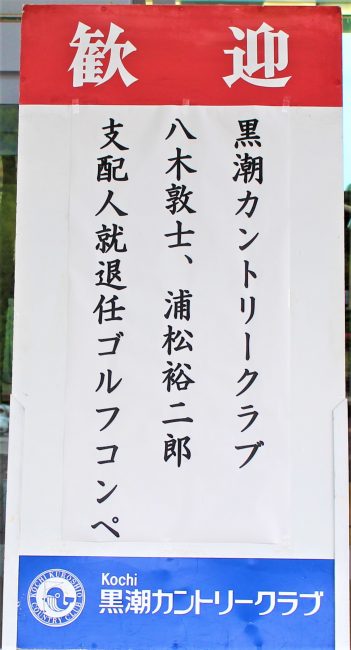 歓迎
黒潮カントリークラブ
八木敦士、浦松裕二郎
支配人就退任ゴルフコンペ
KOCHI KUROSHIO COUNTRY CLUB
Kochi
黒潮カントリークラブ